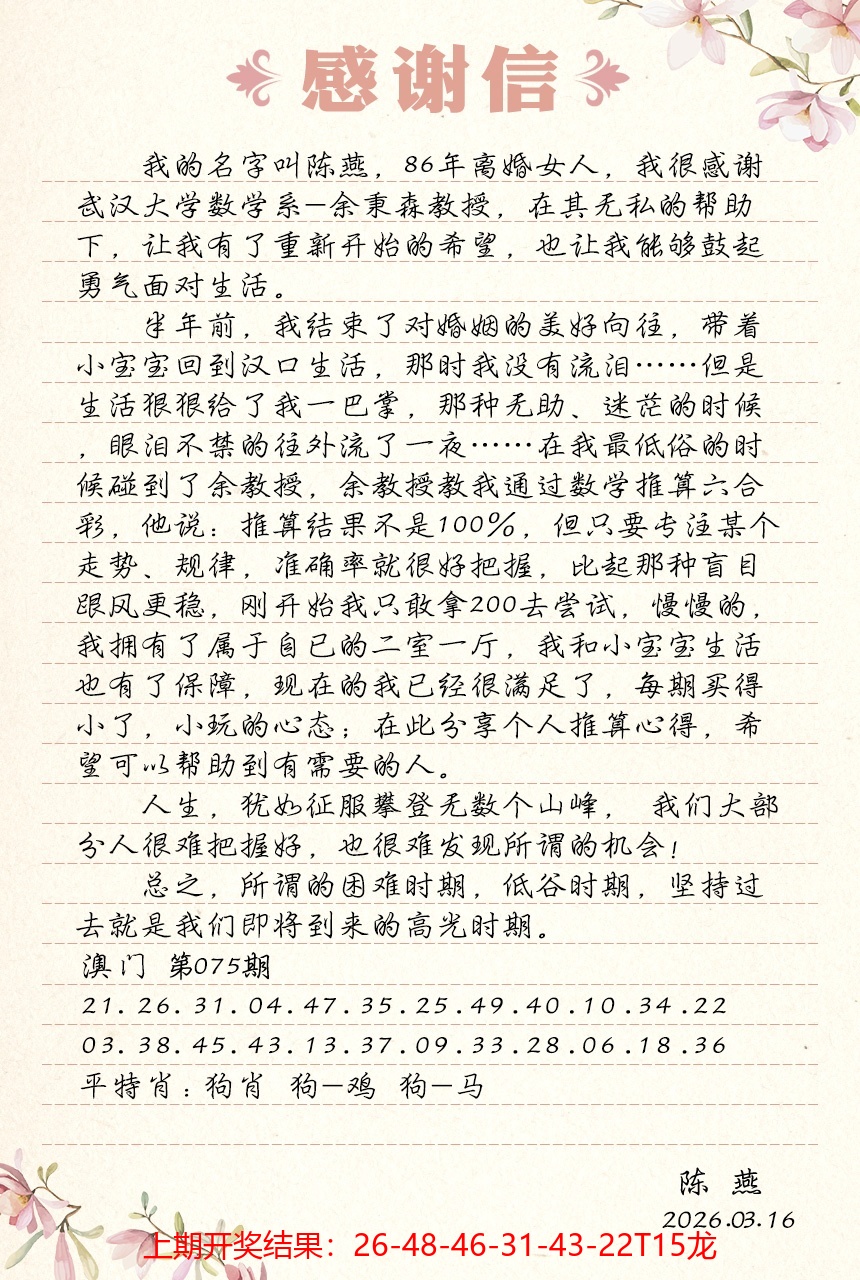 感谢信
我的名字叫陈燕，86年离婚女人，我很感谢
武汉大学数学系—余秉森教授，在其无私的帮助
下，让我有了重新开始的希望，也让我能够鼓起
勇气面对生活。
半年前，我结束了对婚姻的美好向往，带着
小宝宝回到汉口生活，那时我没有流泪……但是
生活狠狠给了我一巴掌，那种无助、迷茫的时候
，眼泪不禁的往外流了一夜……在我最低俗的时
候碰到了余教授，余教授教我通过数学推算六合
彩，他说：推算结果不是100%，但只要专注某个
走势、规律，准确率就很好把握，比起那种盲目
跟风更稳，刚开始我只敢拿200去尝试，慢慢的，
我拥有了属于自已的二室一厅，我和小宝宝生活
也有了保障，现在的我已经很满足了，每期买得
小了，小玩的心态；在此分享个人推算心得，希
望可以帮助到有需要的人。
人生，犹如征服攀登无数个山峰， 我们大部
分人很难把握好，也很难发现所谓的机会！
总之，所谓的困难时期，低谷时期，坚持过
去就是我们即将到来的高光时期。
澳门 第075期
21.26.31.04.47.35.25.49.40.10.34.22
03.38.45.43.13.37.09.33.28.06.18.36
平特肖：狗肖 狗—鸡 狗—马
陈 燕
2026.03.16
上期开奖结果：26-48-46-31-43-22T15龙